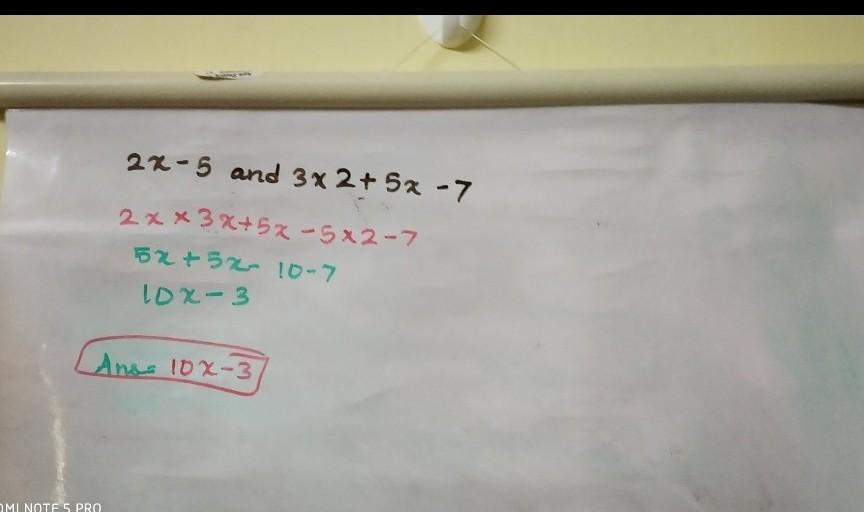 2x-5 and 3x2+5x-7
2x×3x+5x-5×2-7
5x+5x-10-7
10x-3
Ans= 10x-3
OMI NOTE 5 PRO